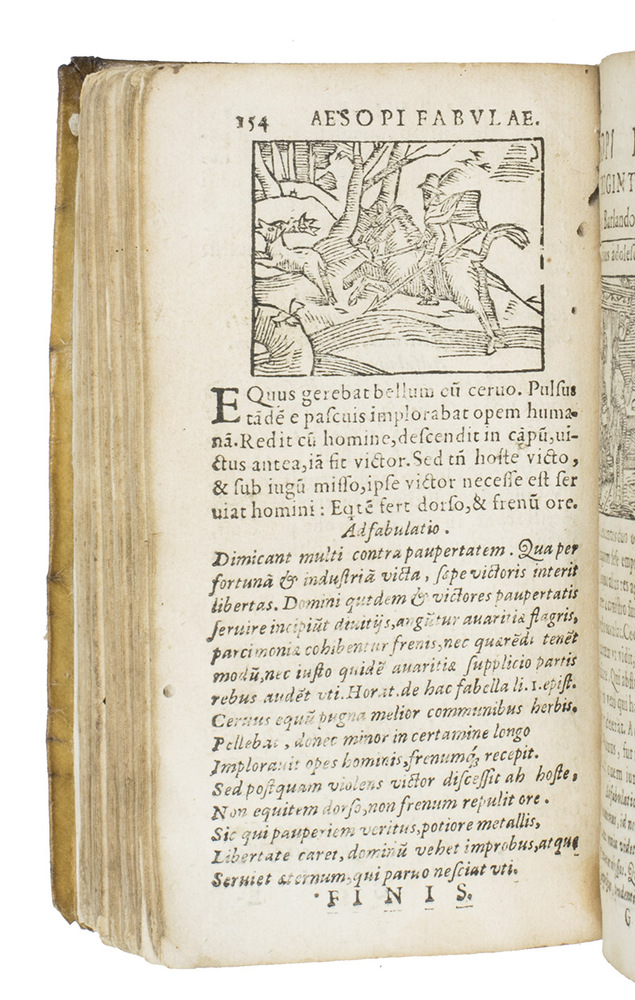 154 AESOPI FABVLAE.
EQuus gerebat bellum cū ceruo. Pulsus
tādē e pascuis implorabat opem huma-
nā. Redit cū homine, descendit in cāpū, ui-
ctus antea, iā fit victor. Sed tñ hoste victo,
& sub iugū misso, ipse victor necesse est ser
uiat homini: Eqtē fert dorso, & frenū ore.
Adfabulatio.
Dimicant multi contra paupertatem. Qua per
fortunā & industriā victa, sępe victoris interit
libertas. Domini qutdem & victores paupertatis
seruire incipiūt diuitijs, angūtur auaritiæ flagris,
parcimoniæ cohibentur frenis, nec quærēdi tenēt
modū, nec iusto quidē auaritiæ supplicio partis
rebus audēt vti. Horat. de hac fabella li. 1. epist.
Ceruus equū pugna melior communibus herbis,
Pellebat, donec minor in certamine longo
Implorauit opes hominis, frenumq́; recepit.
Sed postquam violens victor discessit ab hoste,
Non equitem dorso, non frenum repulit ore.
Sic qui pauperiem veritus, potiore metallis,
Libertate caret, dominū vehet improbus, atque
Seruiet æternum, qui paruo nesciat vti.
FINIS.
OPI
IGINT
Barlando
G